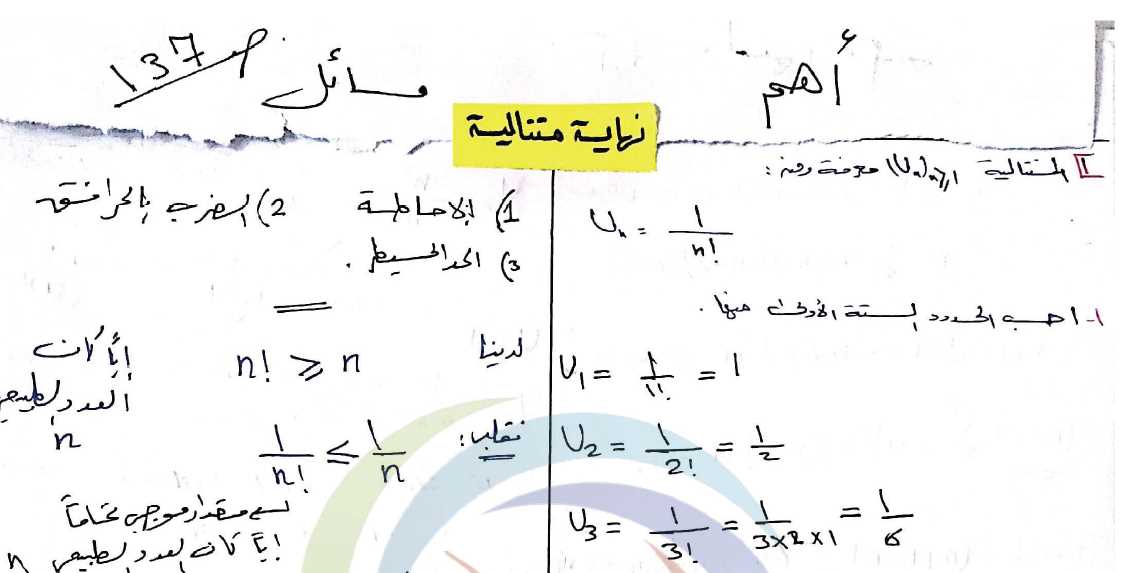 أهم مسائل ص 137
نهاية متتالية
1 المتتالية (Uₙ)ₙ≥₁ معرفة وفق:
Uₙ = 1/n!
1- احسب الحدود الستة الأولى منها.
U₁ = 1/1! = 1
U₂ = 1/2! = 1/2
U₃ = 1/3! = 1/(3×2×1) = 1/6
1) الإحاطة 2) الضرب بالمرافق
3) الحد المسيطر.
لدينا n! ≥ n أياً كان
العدد الطبيعي
n
نقلب: 1/n! ≤ 1/n
مقدار موجب تماماً
أياً كان العدد الطبيعي n